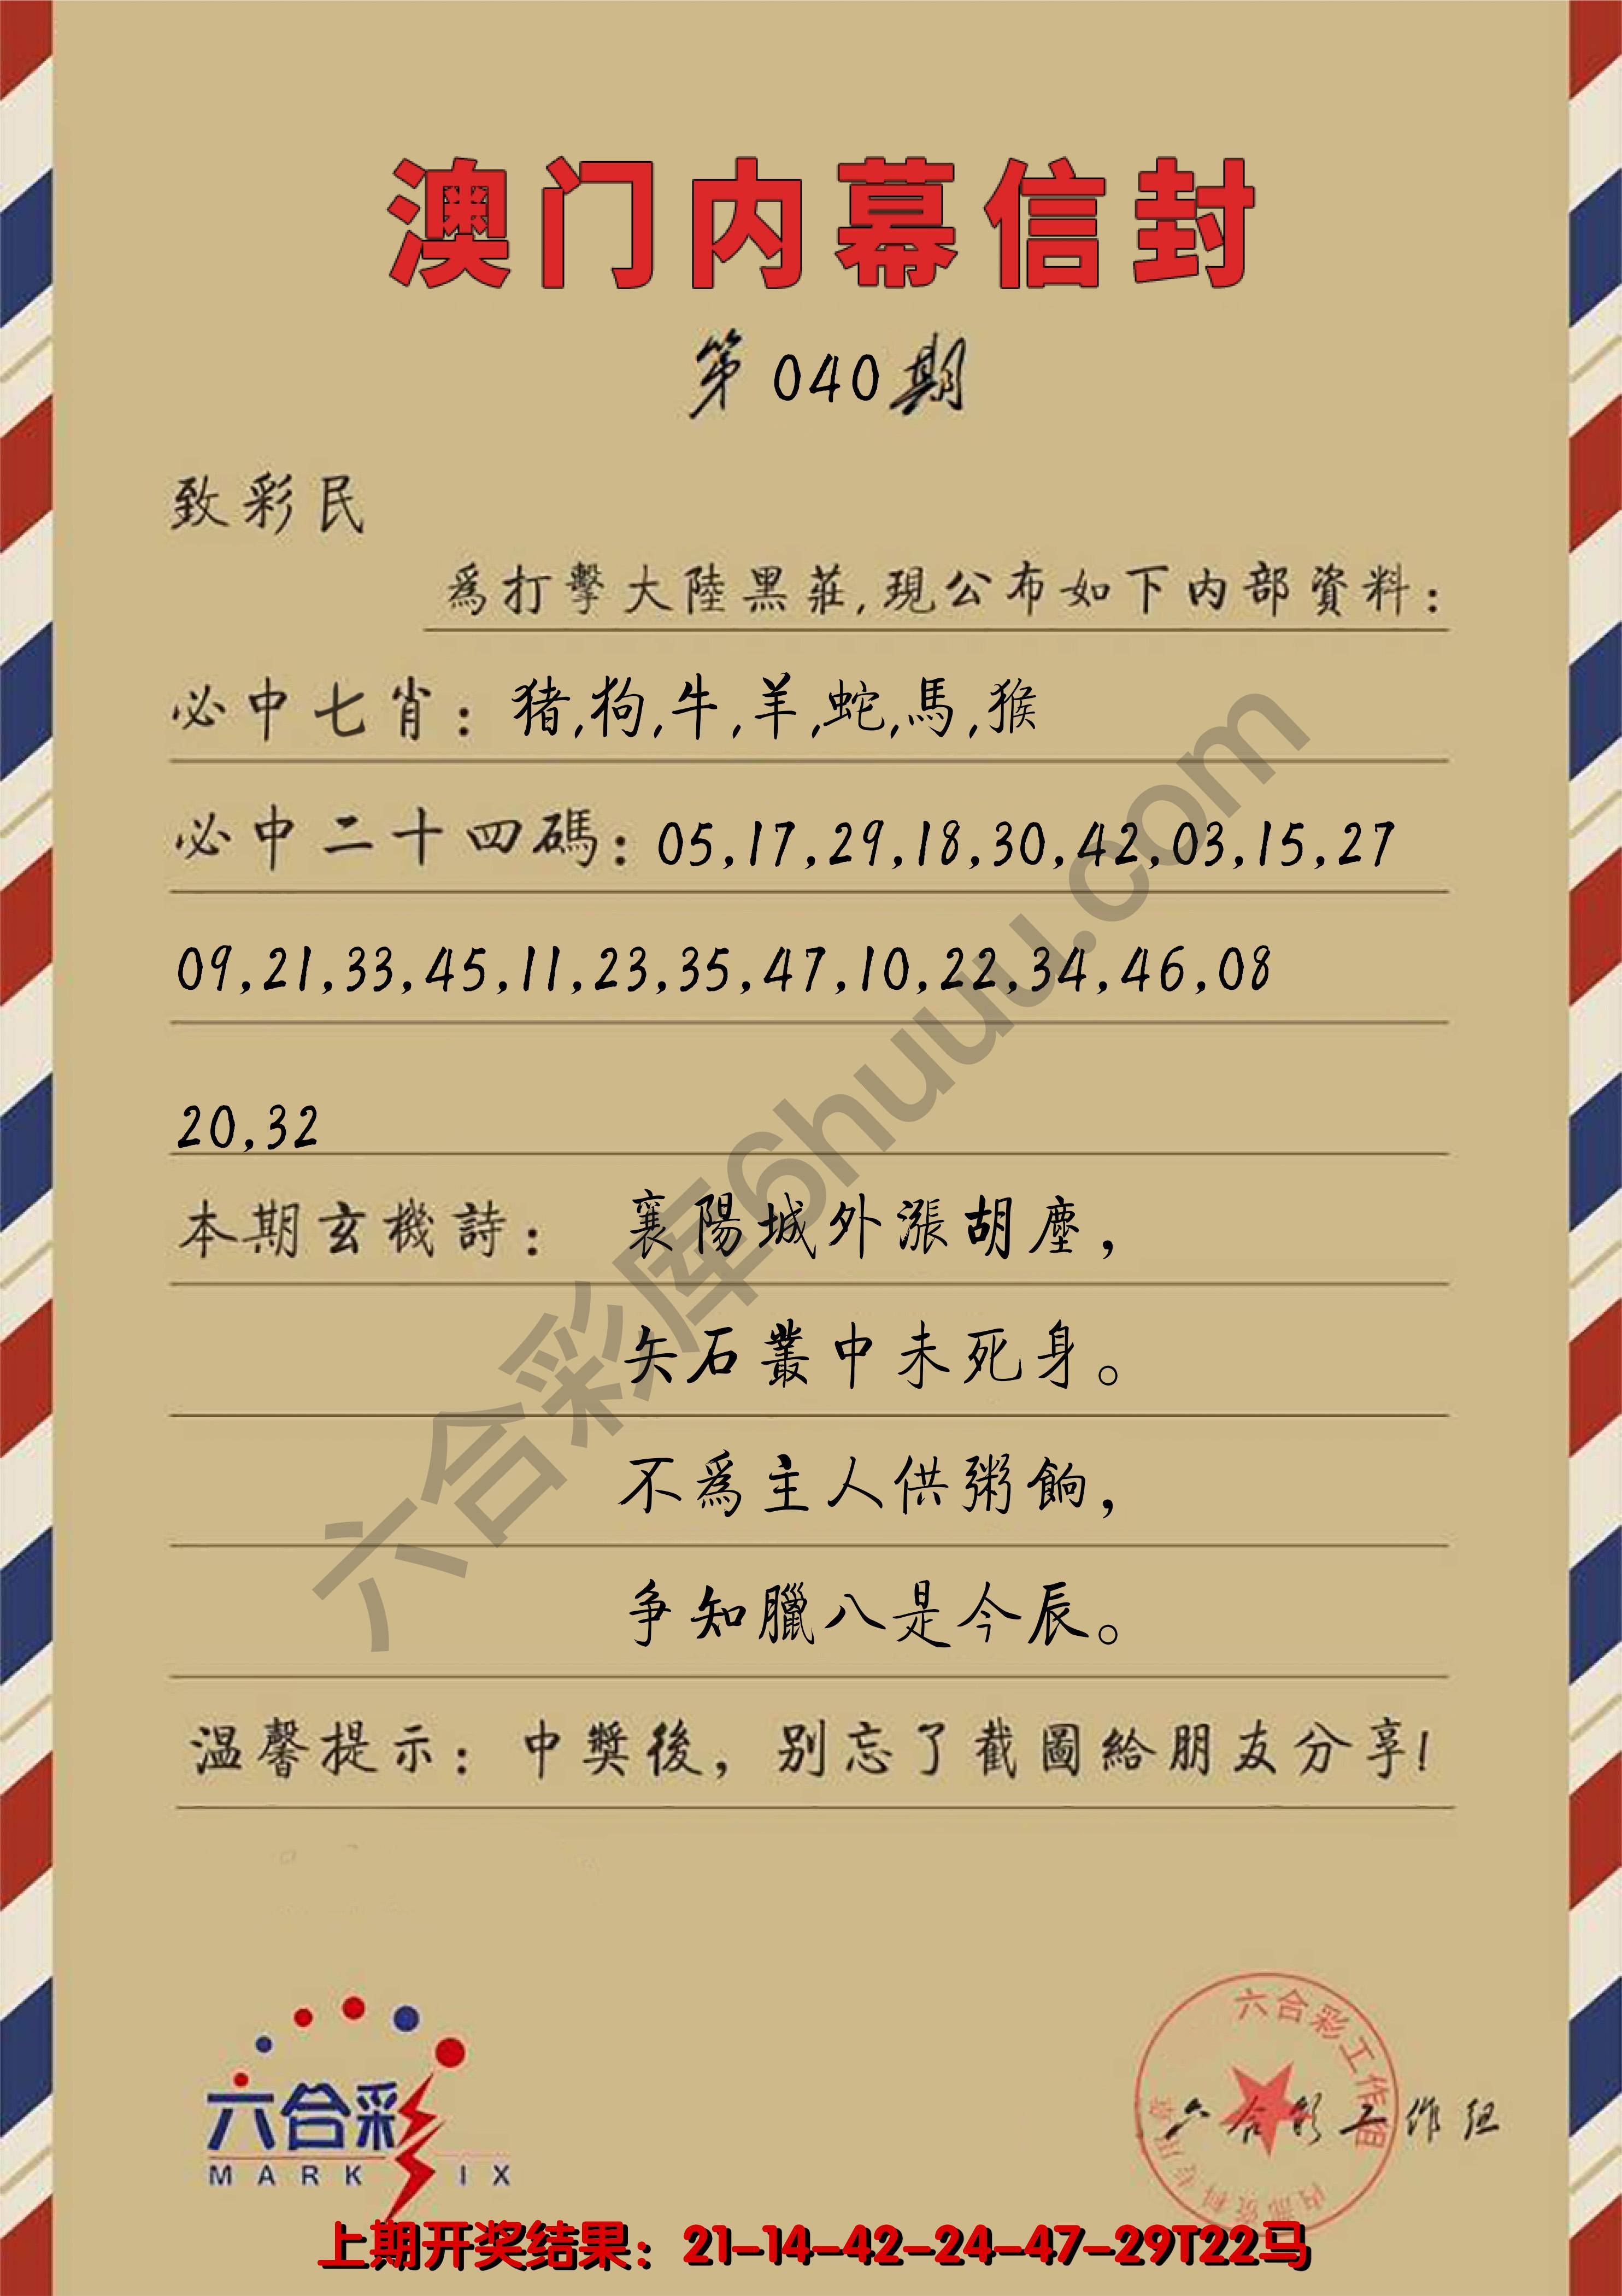 澳门内幕信封
第040期
致彩民
爲打擊大陸黑莊,現公布如下内部資料:
必中七肖: 猪,狗,牛,羊,蛇,馬,猴
必中二十四碼: 05,17,29,18,30,42,03,15,27
09,21,33,45,11,23,35,47,10,22,34,46,08
20,32
本期玄機詩: 襄陽城外漲胡塵,
矢石叢中未死身。
不爲主人供粥餉,
争知臘八是今辰。
温馨提示: 中獎後, 别忘了截圖給朋友分享!
六合彩库6huuu.com
六合彩
MARK IX
六合彩工作组
内部资料专用章
六合彩工作组
上期开奖结果: 21-14-42-24-47-29T22马